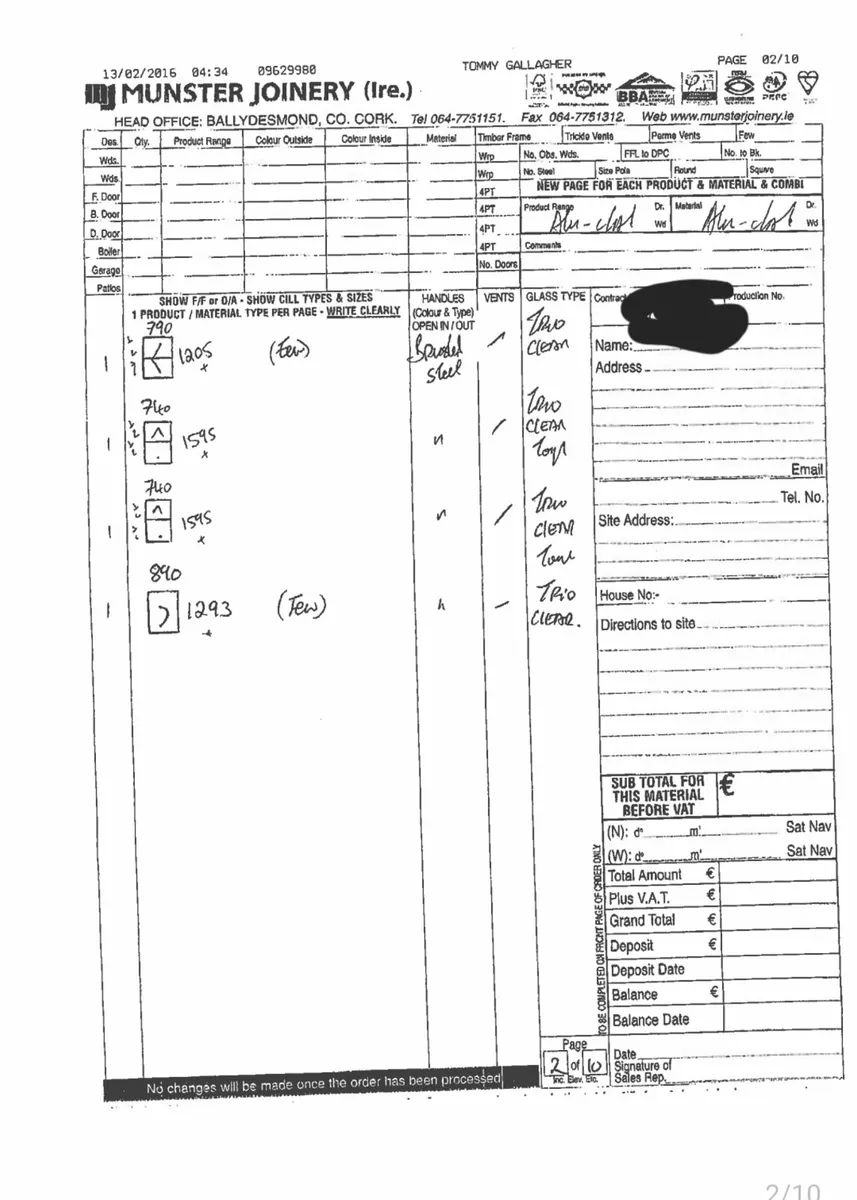 13/02/2016 04:34 09629980 TOMMY GALLAGHER PAGE 02/10
MUNSTER JOINERY (Ire.)
BBA
PEFC
HEAD OFFICE: BALLYDESMOND, CO. CORK. Tel 064-7751151. Fax 064-7751312. Web www.munsterjoinery.ie
Des. Qty. Product Range Colour Outside Colour Inside Material Timber Frame Trickle Vents Perma Vents Few
Wds. Wrp No. Obs. Wds. FFL to DPC No. to Bk.
Wds. Wrp No. Steel Size Pole Round Square
F. Door 4PT NEW PAGE FOR EACH PRODUCT & MATERIAL & COMBI
B. Door 4PT Product Range Alu-clad Dr. Wd Material Alu-clad Dr. Wd
D. Door 4PT
Boiler 4PT Comments
Garage No. Doors
Patios
SHOW F/F or O/A - SHOW CILL TYPES & SIZES
1 PRODUCT / MATERIAL TYPE PER PAGE - WRITE CLEARLY
HANDLES
(Colour & Type)
OPEN IN / OUT
VENTS
GLASS TYPE
Contract
Production No.
790
1 1205 (Few)
Brushed
Steel
TRIO
CLEAR
740
1 1595
TRIO
CLEAR
740
1 1595
TRIO
CLEAR
890
1 1293 (Few)
TRIO
CLEAR.
Name:
Address
Email
Tel. No.
Site Address:
House No:-
Directions to site
SUB TOTAL FOR
THIS MATERIAL
BEFORE VAT
€
(N): d° m' Sat Nav
(W): d° m' Sat Nav
TO BE COMPLETED ON FRONT PAGE OF ORDER ONLY
Total Amount €
Plus V.A.T. €
Grand Total €
Deposit €
Deposit Date
Balance €
Balance Date
Page
2 of 10
Inc. Elev. Etc.
Date
Signature of
Sales Rep.
No changes will be made once the order has been processed
2/10